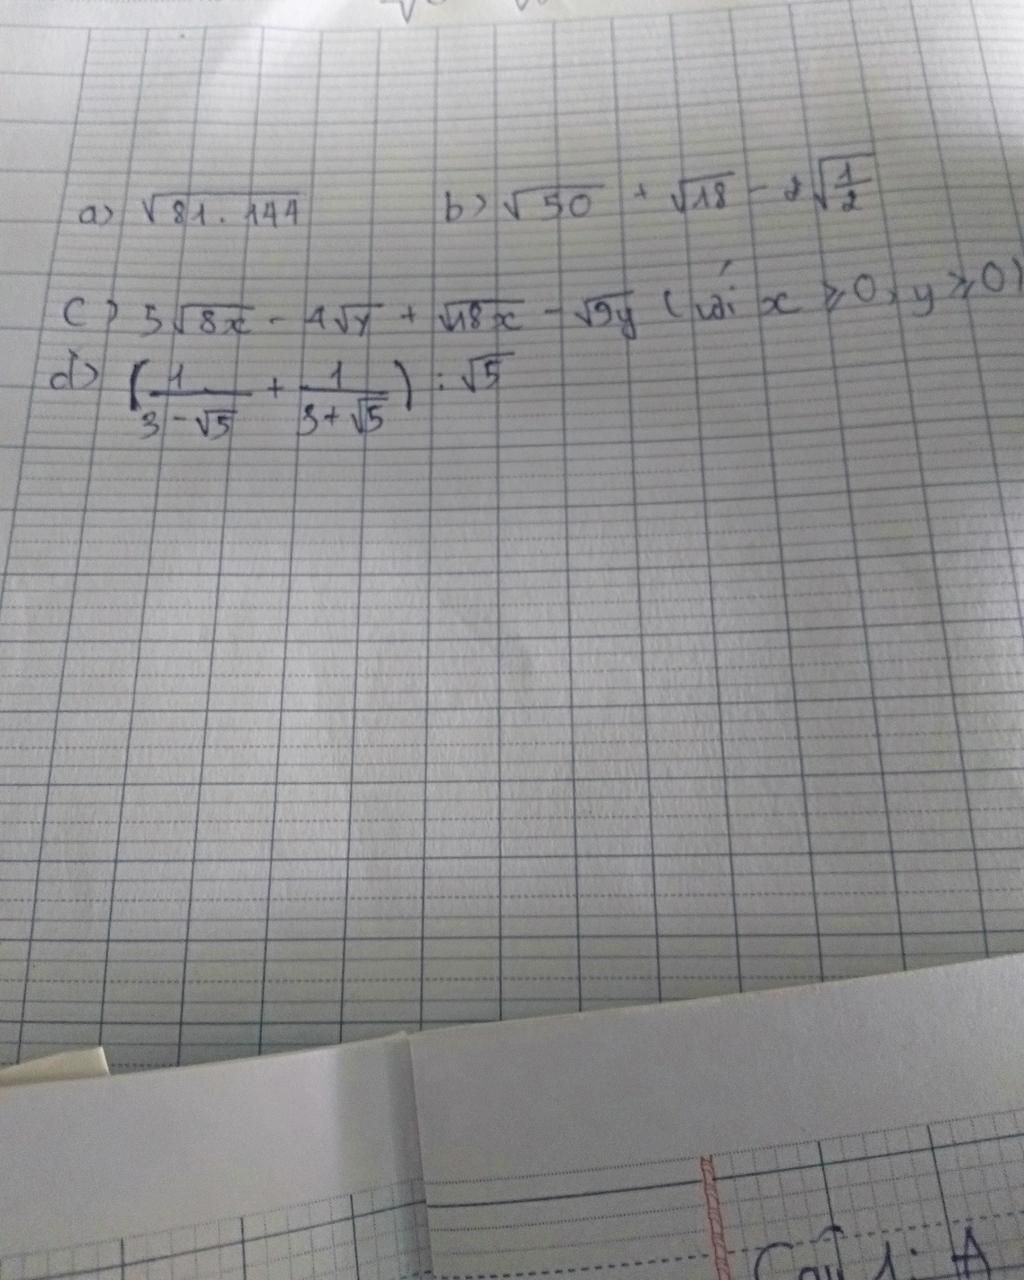 a) √81.144 b) √50 + √18 - 2√1/2
c) 5√8x - 4√y + √18x - √9y (với x ≥ 0, y ≥ 0)
d) (1/3-√5 + 1/3+√5) : √5
Câu 1: A